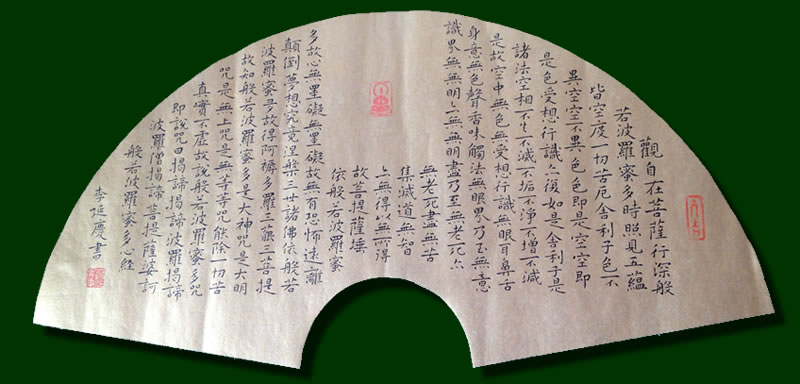 觀自在菩薩行深般
若波羅蜜多時照見五蘊
皆空度一切苦厄舍利子色不
異空空不異色色即是空空即
是色受想行識亦復如是舍利子是
諸法空相不生不滅不垢不淨不增不減
是故空中無色無受想行識無眼耳鼻舌
身意無色聲香味觸法無眼界乃至無意
識界無無明亦無無明盡乃至無老死亦
無老死盡無苦
集滅道無智
亦無得以無所得
故菩提薩埵
依般若波羅蜜
多故心無罣礙無罣礙故無有恐怖遠離
顛倒夢想究竟涅槃三世諸佛依般若
波羅蜜多故得阿耨多羅三藐三菩提
故知般若波羅蜜多是大神咒是大明
咒是無上咒是無等等咒能除一切苦
真實不虛故說般若波羅蜜多咒
即說咒曰揭諦揭諦波羅揭諦
波羅僧揭諦菩提薩婆訶
般若波羅蜜多心經
李慶書